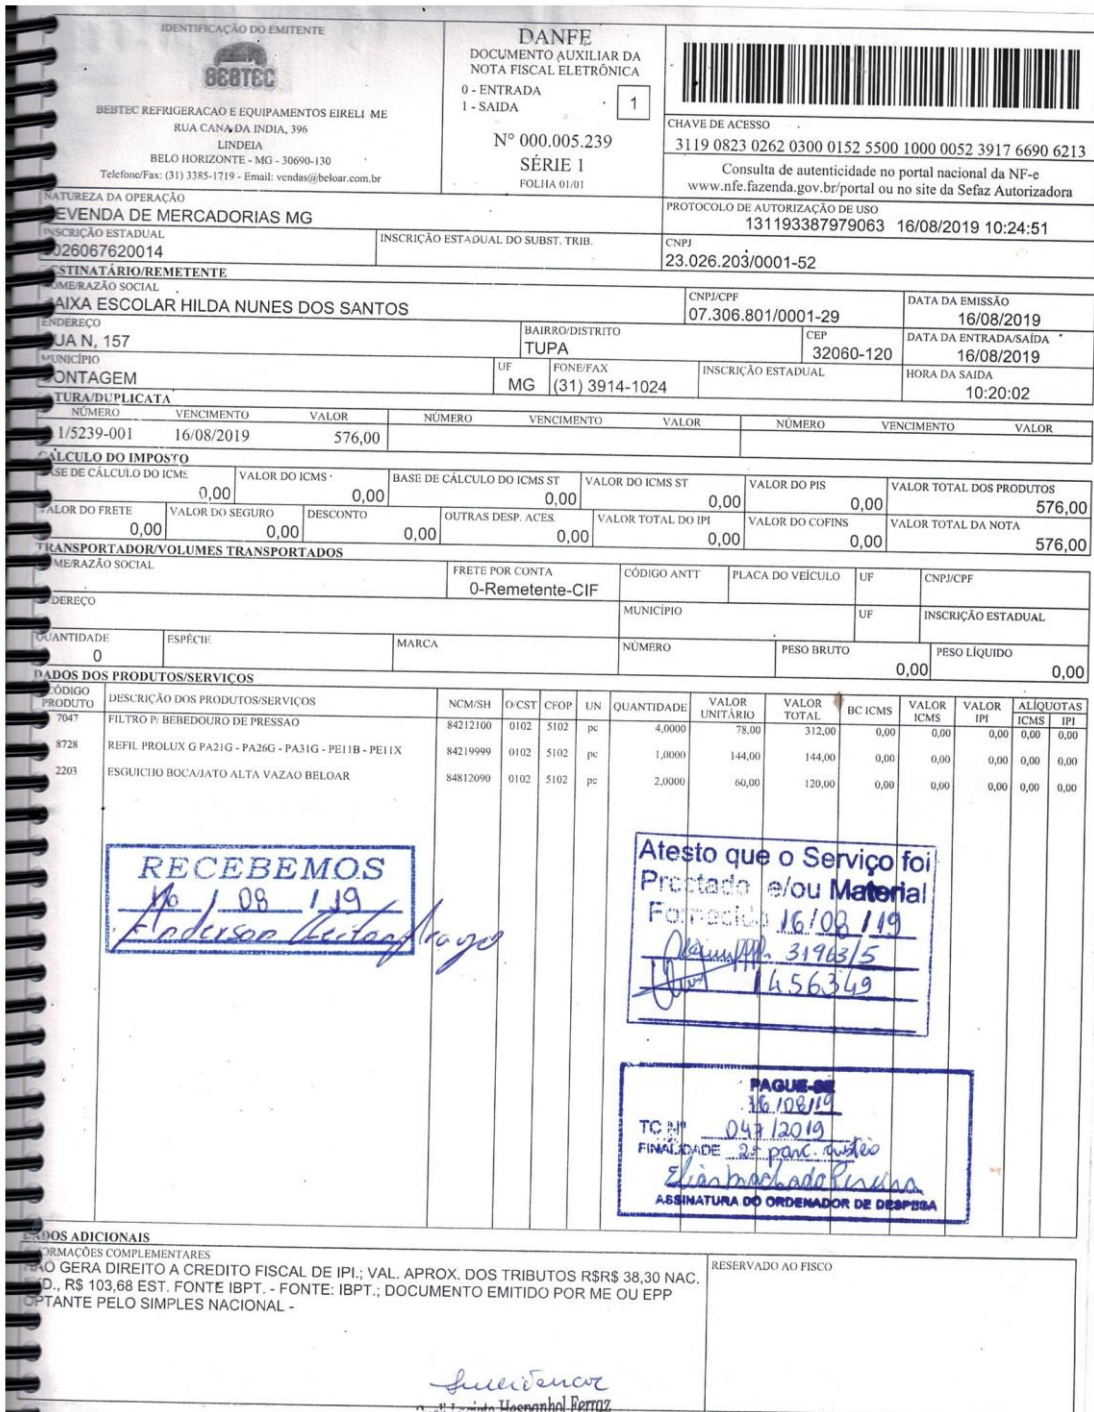 IDENTIFICAÇÃO DO EMITENTE
BEBTEC
BEBTEC REFRIGERACAO E EQUIPAMENTOS EIRELI ME
RUA CANA DA INDIA, 396
LINDEIA
BELO HORIZONTE - MG - 30690-130
Telefone/Fax: (31) 3385-1719 - Email: vendas@beloar.com.br
DANFE
DOCUMENTO AUXILIAR DA
NOTA FISCAL ELETRÔNICA
0 - ENTRADA
1 - SAIDA
1
N° 000.005.239
SÉRIE 1
FOLHA 01/01
CHAVE DE ACESSO
3119 0823 0262 0300 0152 5500 1000 0052 3917 6690 6213
Consulta de autenticidade no portal nacional da NF-e
www.nfe.fazenda.gov.br/portal ou no site da Sefaz Autorizadora
NATUREZA DA OPERAÇÃO
EVENDA DE MERCADORIAS MG
PROTOCOLO DE AUTORIZAÇÃO DE USO
131193387979063 16/08/2019 10:24:51
INSCRIÇÃO ESTADUAL
026067620014
INSCRIÇÃO ESTADUAL DO SUBST. TRIB.
CNPJ
23.026.203/0001-52
ESTINATÁRIO/REMETENTE
OME/RAZÃO SOCIAL
AIXA ESCOLAR HILDA NUNES DOS SANTOS
CNPJ/CPF
07.306.801/0001-29
DATA DA EMISSÃO
16/08/2019
ENDEREÇO
UA N, 157
BAIRRO/DISTRITO
TUPA
CEP
32060-120
DATA DA ENTRADA/SAÍDA
16/08/2019
MUNICÍPIO
ONTAGEM
UF
MG
FONE/FAX
(31) 3914-1024
INSCRIÇÃO ESTADUAL
HORA DA SAIDA
10:20:02
TURA/DUPLICATA
NÚMERO VENCIMENTO VALOR NÚMERO VENCIMENTO VALOR NÚMERO VENCIMENTO VALOR
1/5239-001 16/08/2019 576,00
CÁLCULO DO IMPOSTO
ASE DE CÁLCULO DO ICMS VALOR DO ICMS BASE DE CÁLCULO DO ICMS ST VALOR DO ICMS ST VALOR DO PIS VALOR TOTAL DOS PRODUTOS
0,00 0,00 0,00 0,00 0,00 576,00
VALOR DO FRETE VALOR DO SEGURO DESCONTO OUTRAS DESP. ACES. VALOR TOTAL DO IPI VALOR DO COFINS VALOR TOTAL DA NOTA
0,00 0,00 0,00 0,00 0,00 0,00 576,00
TRANSPORTADOR/VOLUMES TRANSPORTADOS
ME/RAZÃO SOCIAL
FRETE POR CONTA
0-Remetente-CIF
CÓDIGO ANTT PLACA DO VEÍCULO UF CNPJ/CPF
DEREÇO
MUNICÍPIO UF INSCRIÇÃO ESTADUAL
QUANTIDADE ESPÉCIE MARCA NÚMERO PESO BRUTO PESO LÍQUIDO
0 0,00 0,00
DADOS DOS PRODUTOS/SERVIÇOS
CÓDIGO PRODUTO DESCRIÇÃO DOS PRODUTOS/SERVIÇOS NCM/SH O/CST CFOP UN QUANTIDADE VALOR UNITÁRIO VALOR TOTAL BC ICMS VALOR ICMS VALOR IPI ALÍQUOTAS ICMS IPI
7047 FILTRO P/ BEBEDOURO DE PRESSAO 84212100 0102 5102 pc 4,0000 78,00 312,00 0,00 0,00 0,00 0,00 0,00
8728 REFIL PROLUX G PA21G - PA26G - PA31G - PE11B - PE11X 84219999 0102 5102 pc 1,0000 144,00 144,00 0,00 0,00 0,00 0,00 0,00
2203 ESGUICHO BOCA/JATO ALTA VAZAO BELOAR 84812090 0102 5102 pc 2,0000 60,00 120,00 0,00 0,00 0,00 0,00 0,00
RECEBEMOS
16 / 08 / 19
Anderson
Atesto que o Serviço foi
Prestado e/ou Material
Fornecido 16/08/19
31963/5
1456349
PAGUE-SE
16/08/19
TC Nº 047/2019
FINALIDADE 2ª parc. custeio
Elias Machado Pereira
ASSINATURA DO ORDENADOR DE DESPESA
DADOS ADICIONAIS
FORMAÇÕES COMPLEMENTARES
NÃO GERA DIREITO A CREDITO FISCAL DE IPI.; VAL. APROX. DOS TRIBUTOS R$R$ 38,30 NAC.
D., R$ 103,68 EST. FONTE IBPT. - FONTE: IBPT.; DOCUMENTO EMITIDO POR ME OU EPP
OPTANTE PELO SIMPLES NACIONAL -
RESERVADO AO FISCO
Hespanhol Ferraz